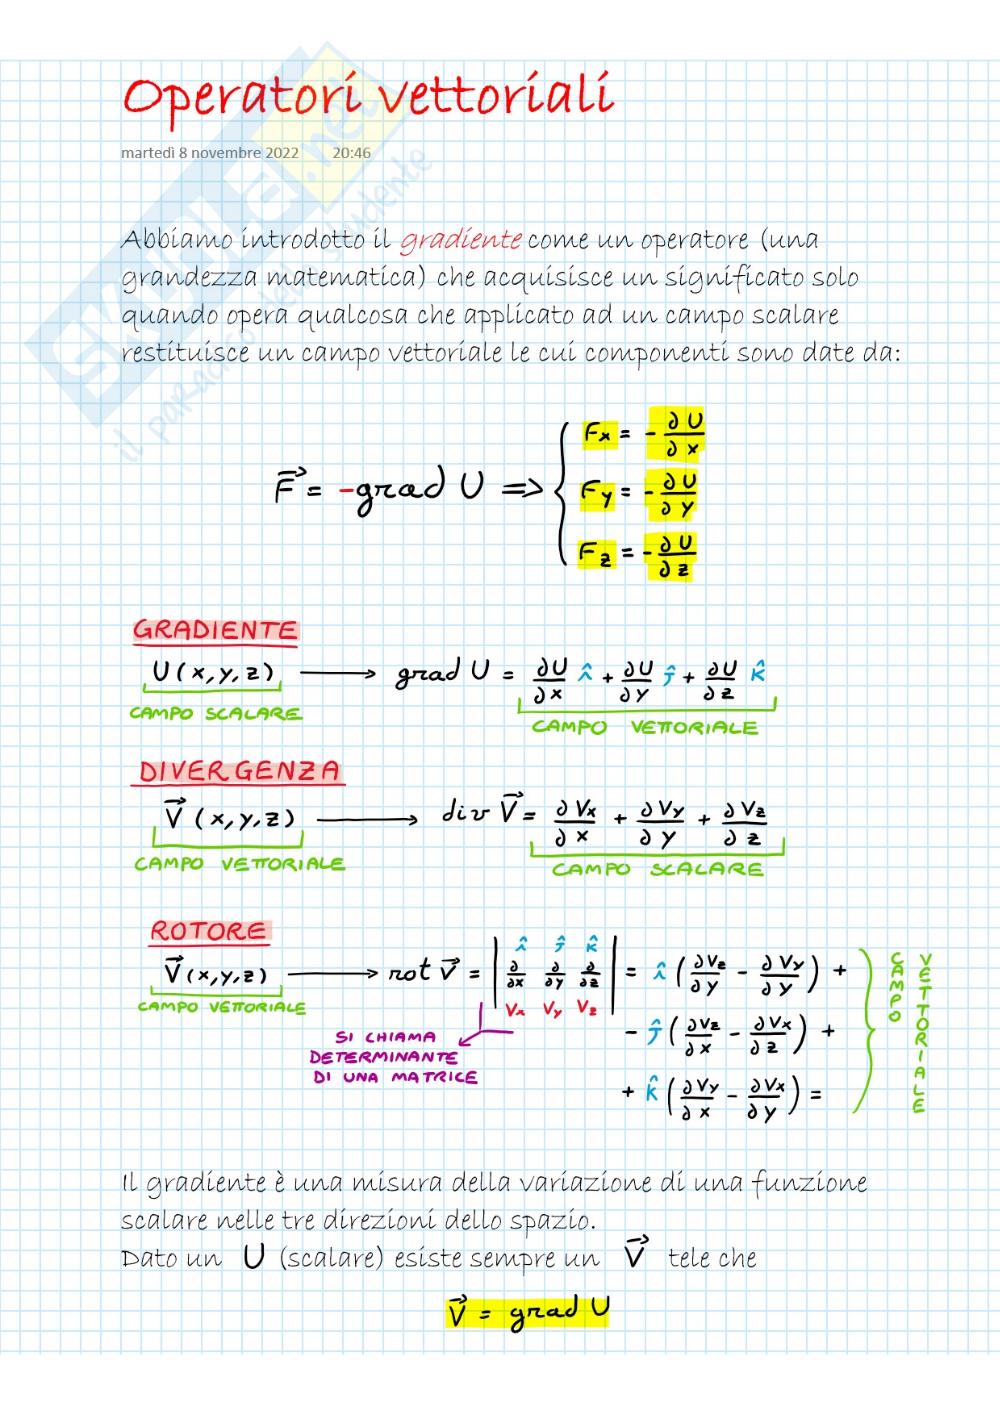 Operatori vettoriali
martedì 8 novembre 2022 20:46
SKUOLA.net
il paradiso dello studente
Abbiamo introdotto il gradiente come un operatore (una
grandezza matematica) che acquisisce un significato solo
quando opera qualcosa che applicato ad un campo scalare
restituisce un campo vettoriale le cui componenti sono date da:
F⃗ = -grad U => { Fx = - ∂U/∂x
Fy = - ∂U/∂y
Fz = - ∂U/∂z
GRADIENTE
U(x,y,z) ⟶ grad U = ∂U/∂x î + ∂U/∂y ĵ + ∂U/∂z k̂
CAMPO SCALARE CAMPO VETTORIALE
DIVERGENZA
V⃗ (x,y,z) ⟶ div V⃗ = ∂Vx/∂x + ∂Vy/∂y + ∂Vz/∂z
CAMPO VETTORIALE CAMPO SCALARE
ROTORE
V⃗(x,y,z) ⟶ rot V⃗ = | î ĵ k̂ ; ∂/∂x ∂/∂y ∂/∂z ; Vx Vy Vz | = î (∂Vz/∂y - ∂Vy/∂y) +
- ĵ (∂Vz/∂x - ∂Vx/∂z) +
+ k̂ (∂Vy/∂x - ∂Vx/∂y) =
CAMPO VETTORIALE
CAMPO VETTORIALE
SI CHIAMA
DETERMINANTE
DI UNA MATRICE
Il gradiente è una misura della variazione di una funzione
scalare nelle tre direzioni dello spazio.
Dato un U (scalare) esiste sempre un V⃗ tele che
V⃗ = grad U